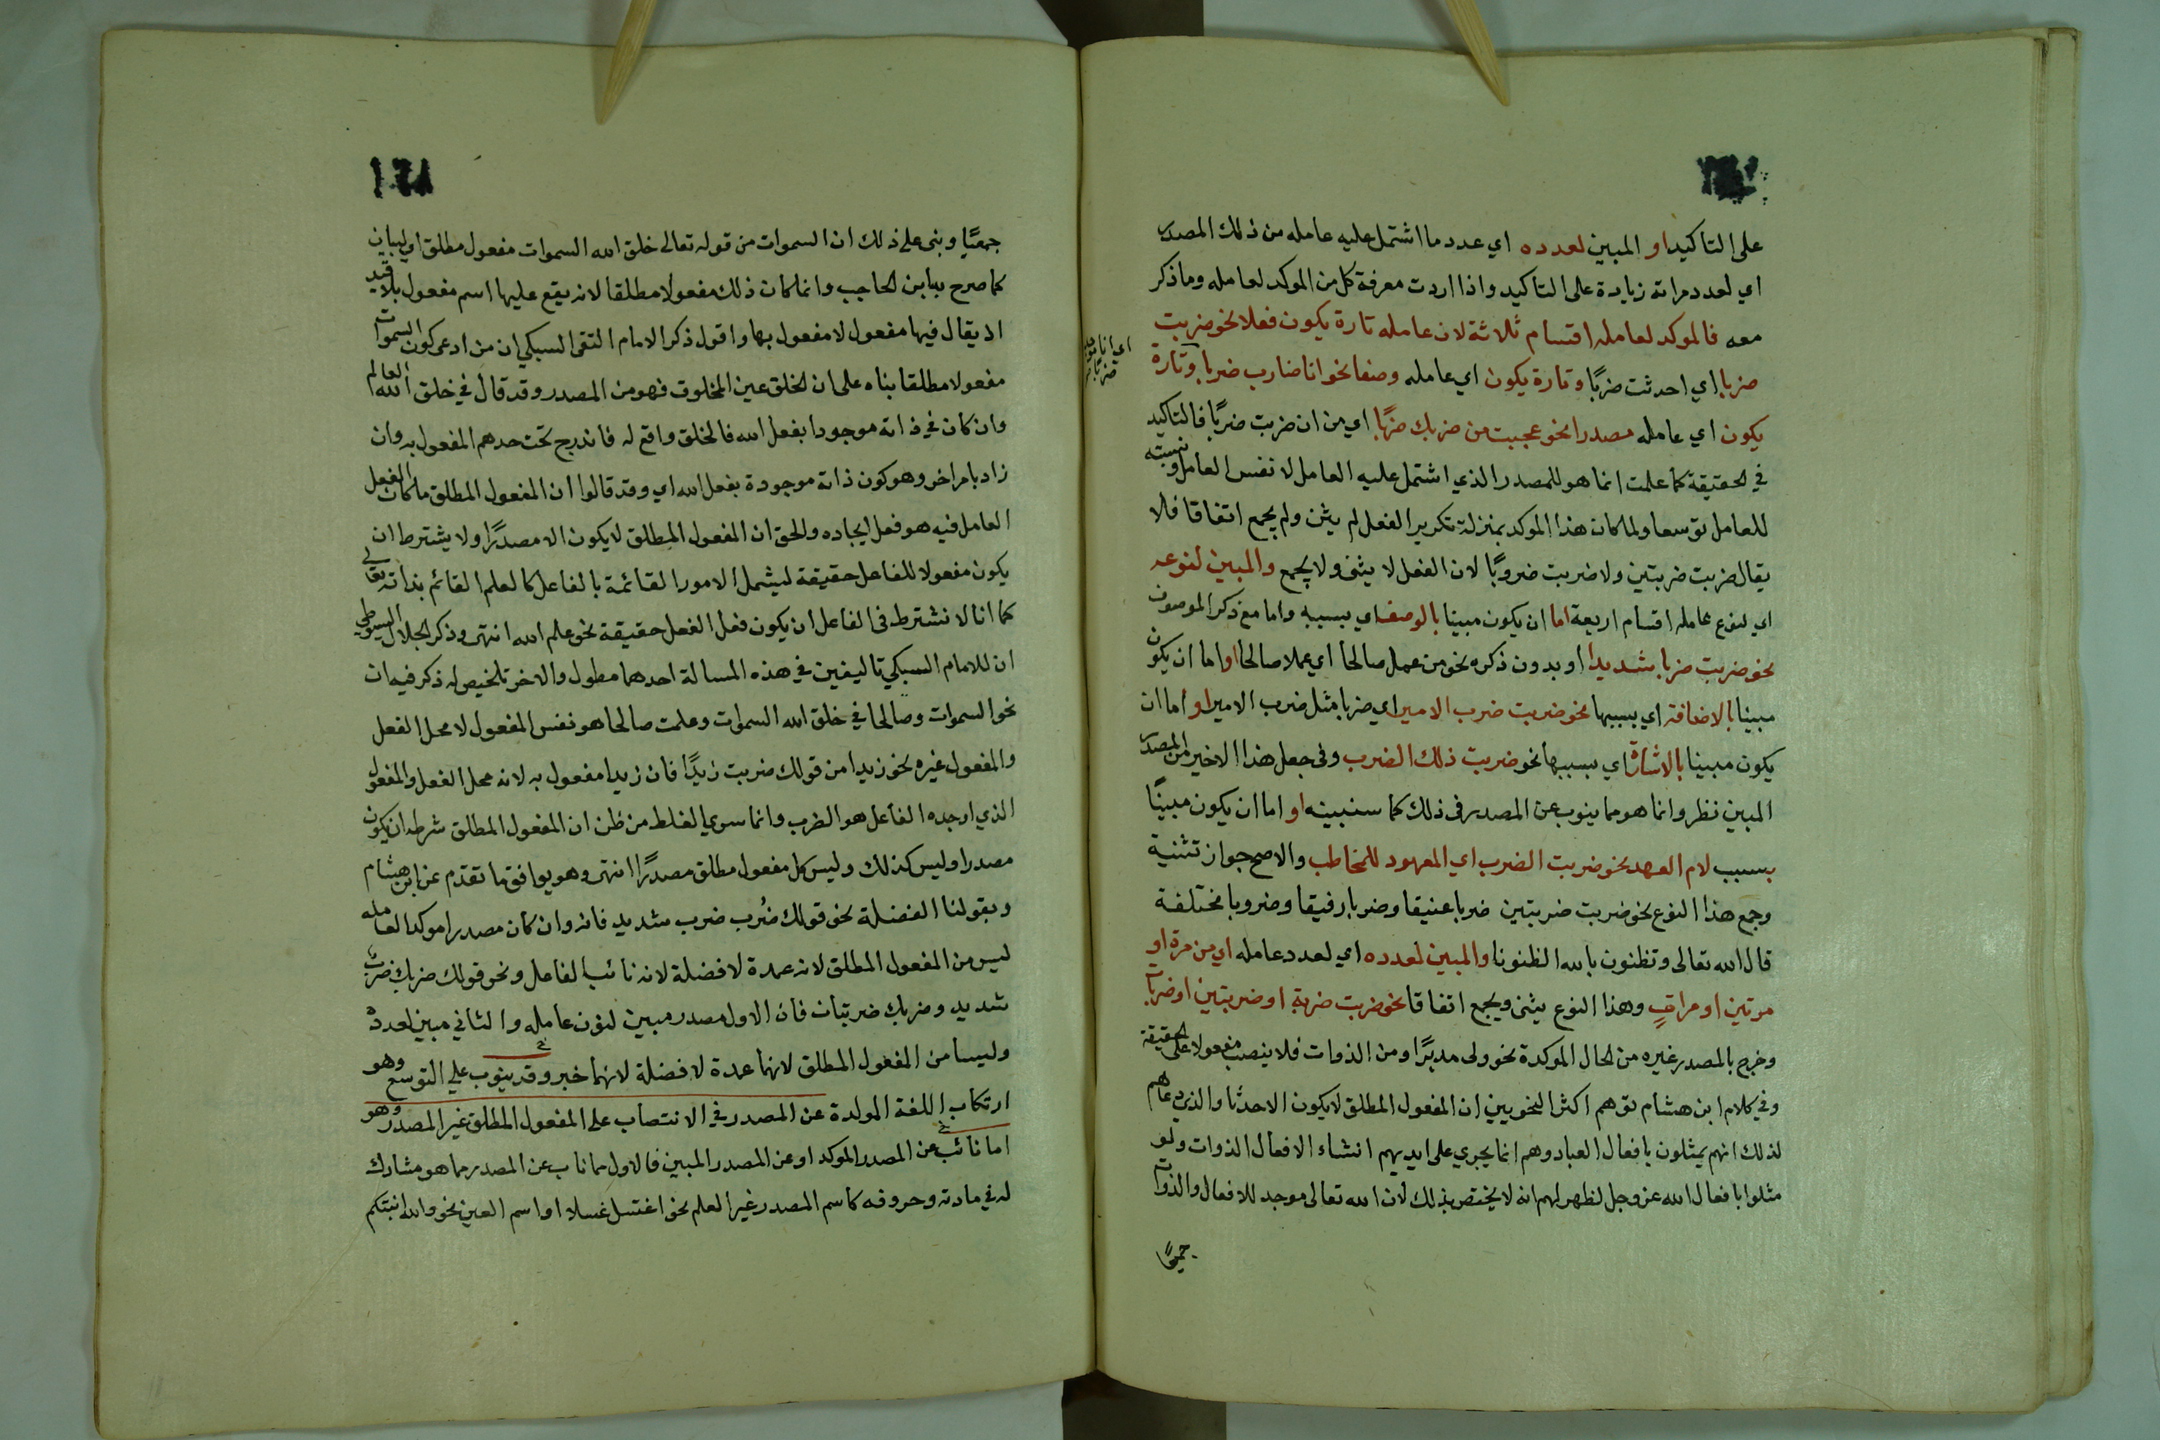 على التاكيد او المبين لعدده اي عدد ما اشتمل عليه عامله من ذلك المصدر
اي لعدد مراته زيادة على التاكيد واذا اردت معرفة كل من الموكد لعامله وما ذكر
معه فالموكد لعامله اقسام ثلاثة لان عامله تارة يكون فعلا نحو ضربت
ضربا اي احدثت ضربًا وتارة يكون اي عامله وصفا نحو انا ضارب ضربا وتارة
يكون اي عامله مصدرا نحو عجبت من ضربك ضربًا اي من ان ضربت ضربًا فالتاكيد
في الحقيقة كما علمت انما هو للمصدر الذي اشتمل عليه العامل لا نفس العامل ونسبته
للعامل توسعا ولما كان هذا الموكد بمنزلة تكرير الفعل لم يثن ولم يجمع اتفاقا فلا
يقال ضربت ضربتين ولا ضربت ضروبًا لان الفعل لا يثنى ولا يجمع والمبين لنوعه
اي لنوع عامله اقسام اربعة اما ان يكون مبينا بالوصف اي بسببه واما مع ذكر الموصوف
نحو ضربت ضربا شديدا او بدون ذكره نحو من عمل صالحا اي عملا صالحا او اما ان يكون
مبينا بالاضافة اي بسببها نحو ضربت ضرب الامير اي ضربا مثل ضرب الامير او اما ان
يكون مبينا بالاشارة اي بسببها نحو ضربت ذلك الضرب وفى جعل هذا الاخير من المصدر
المبين نظر وانما هو مما ينوب عن المصدر فى ذلك كما سنبينه او اما ان يكون مبينًا
بسبب لام العهد نحو ضربت الضرب اي المعهود للمخاطب والاصح جواز تثنية
وجمع هذا النوع نحو ضربت ضربتين ضربا عنيفا وضربا رفيقا وضروبا مختلفة
قال الله تعالى وتظنون بالله الظنونا والمبين لعدده اي لعدد عامله اي من مرة او
مرتين او مرات وهذا النوع يثنى ويجمع اتفاقا نحو ضربت ضربة او ضربتين او ضربات
وخرج بالمصدر غيره من الحال الموكدة نحو ولى مدبرًا ومن الذوات فلا ينصب مفعولا على الحقيقة
وفي كلام ابن هشام توهم اكثر النحويين ان المفعول المطلق لا يكون الا حدثا والذي دعاهم
لذلك انهم يمثلون بافعال العباد وهم انما يجري على ايديهم انشاء الافعال لا الذوات ولو
مثلوا بافعال الله عز وجل لظهر لهم انه لا يختص بذلك لان الله تعالى موجد للافعال والذوات
جميعًا
جميعًا وبنى على ذلك ان السموات من قوله تعالى خلق الله السموات مفعول مطلق اي لبيان
كما صرح به ابن الحاجب وانما كان ذلك مفعولا مطلقا لانه يقع عليها اسم مفعول بلا قيد
اذ يقال فيها مفعول لا مفعول بها واقول ذكر الامام التقى السبكي ان من ادعى كون السموات
مفعولا مطلقا بناه على ان الخلق عين المخلوق فهو من المصدر وقد قال في خلق الله العالم
وان كان في ذاته موجودا بفعل الله فالخلق واقع له فاندرج تحت حدهم المفعول به وان
زاد بامر اخر وهو كون ذاته موجودة بفعل الله اي وقد قالوا ان المفعول المطلق ما كان الفعل
العامل فيه هو فعل ايجاده والحق ان المفعول المطلق لا يكون الا مصدرًا ولا يشترط ان
يكون مفعولا للفاعل حقيقة ليشمل الامور القائمة بالفاعل كالعلم القائم بذاته تعالى
كما انا لا نشترط فى الفاعل ان يكون فعل الفعل حقيقة نحو علم الله انتهى وذكر الجلال السيوطي
ان للامام السبكي تاليفين في هذه المسالة احدهما مطول والاخر تلخيص له ذكر فيه ان
نحو السموات وصالحا في خلق الله السموات وعملت صالحا هو نفس المفعول لا محل الفعل
والمفعول غيره نحو زيدا من قولك ضربت زيدًا فان زيدا مفعول به لانه محل الفعل والمفعول
الذي اوجده الفاعل هو الضرب وانما سرى الغلط من ظن ان المفعول المطلق شرطه ان يكون
مصدرا وليس كذلك وليس كل مفعول مطلق مصدرًا انتهى وهو يوافق ما تقدم عن ابن هشام
وبقولنا الفضلة نحو قولك ضُرب ضرب شديد فانه وان كان مصدرا موكدا لعامله
ليس من المفعول المطلق لانه عمدة لا فضلة لانه نائب الفاعل ونحو قولك ضربك ضرب
شديد وضربك ضربتان فان الاول مصدر مبين لنوع عامله والثاني مبين لعدده
وليسا من المفعول المطلق لانهما عمدة لا فضلة لانهما خبر وقد ينوب على التوسع وهو
ارتكاب اللغة المولدة عن المصدر في الانتصاب على المفعول المطلق غير المصدر وهو
اما نائب عن المصدر الموكد او عن المصدر المبين فالاول مما ناب عن المصدر مما هو مشارك
له في مادته وحروفه كاسم المصدر غير العلم نحو اغتسل غسلا او اسم العين نحو والله انبتكم